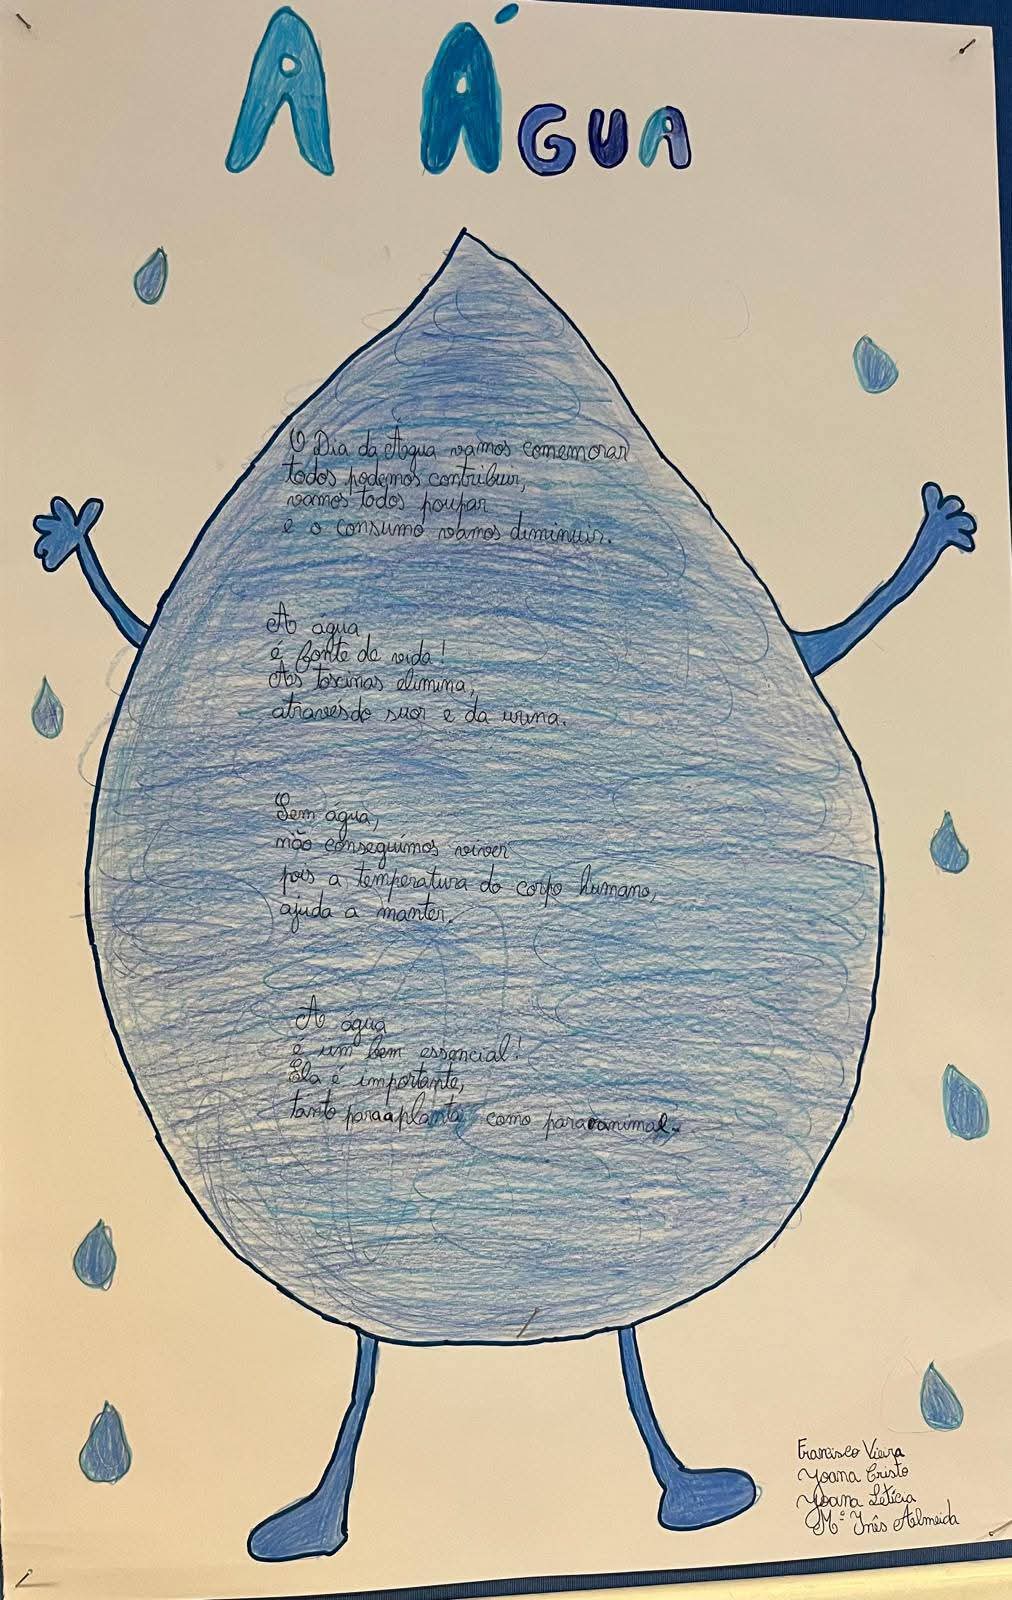 A ÁGUA
O Dia da Água vamos comemorar
todos podemos contribuir,
vamos todos poupar
e o consumo vamos diminuir.
A água
é fonte de vida!
As toscinas elimina,
atravesdo suor e da urina.
Sem água,
não conseguimos viver
pois a temperatura do corpo humano,
ajuda a manter.
A água
é um bem essencial!
Ela é importante,
tanto paraaplanta como paraoanimal.
Francisco Vieira
Joana Cristo
Joana Letícia
Mª Inês Almeida